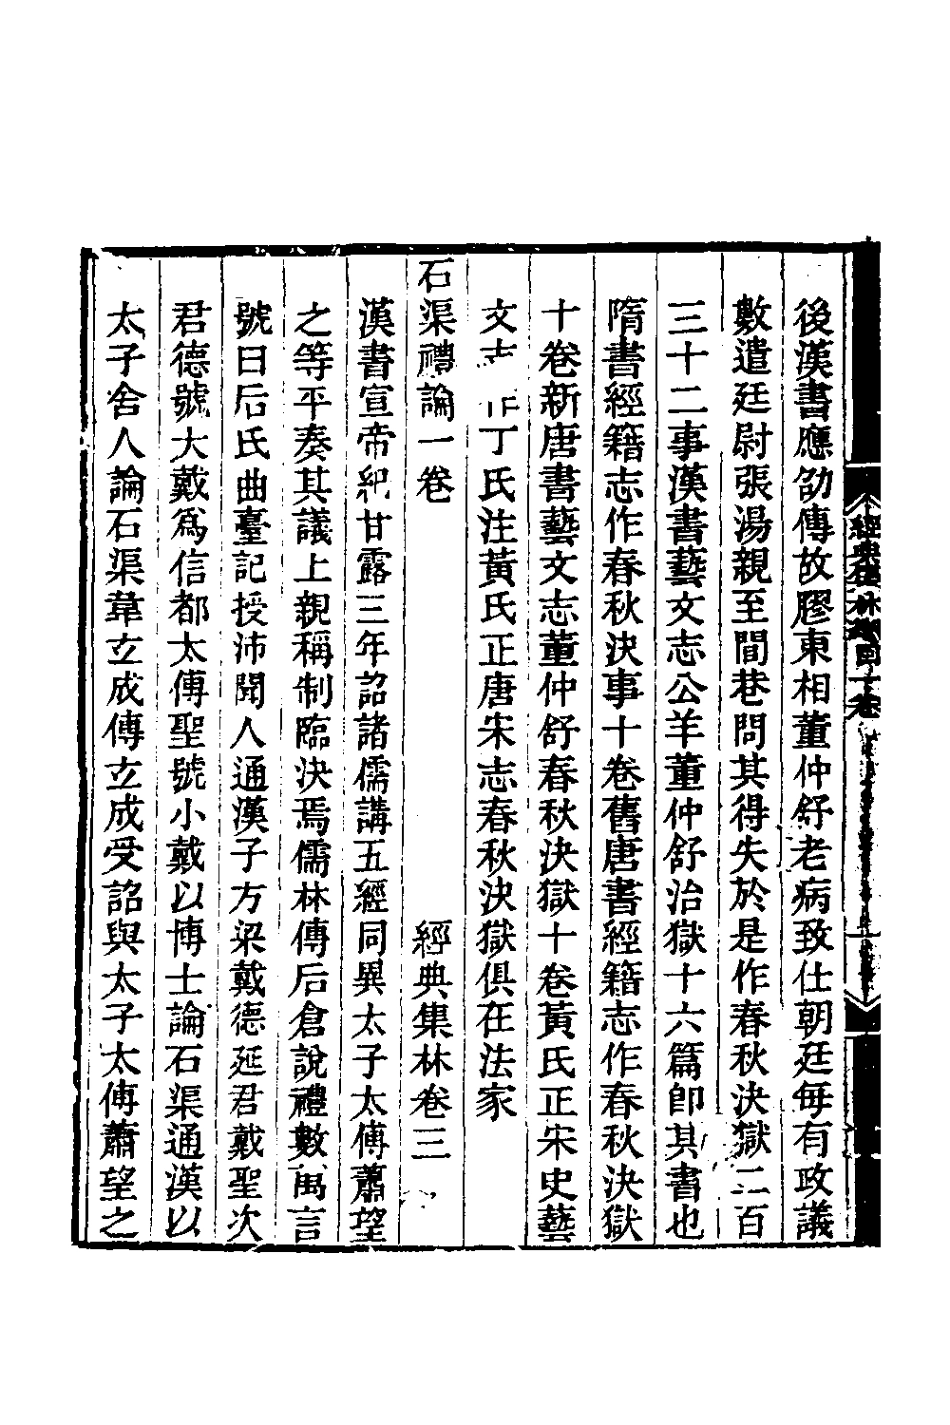 後漢書應劭傳故膠東相董仲舒老病致仕朝廷每有政議
數遣廷尉張湯親至閭巷問其得失於是作春秋決獄二百
三十二事漢書藝文志公羊董仲舒治獄十六篇卽其書也
隋書經籍志作春秋決事十卷舊唐書經籍志作春秋決獄
十卷新唐書藝文志董仲舒春秋決獄十卷黃氏正宋史藝
文志作丁氏注黃氏正唐宋志春秋決獄俱在法家
石渠禮論一卷 經典集林卷三
漢書宣帝紀甘露三年詔諸儒講五經同異太子太傅蕭望
之等平奏其議上親稱制臨決焉儒林傳后倉說禮數萬言
號曰后氏曲臺記授沛聞人通漢子方梁戴德延君戴聖次
君德號大戴爲信都太傅聖號小戴以博士論石渠通漢以
太子舍人論石渠韋玄成傳玄成受詔與太子太傅蕭望之
經典集林總目一卷